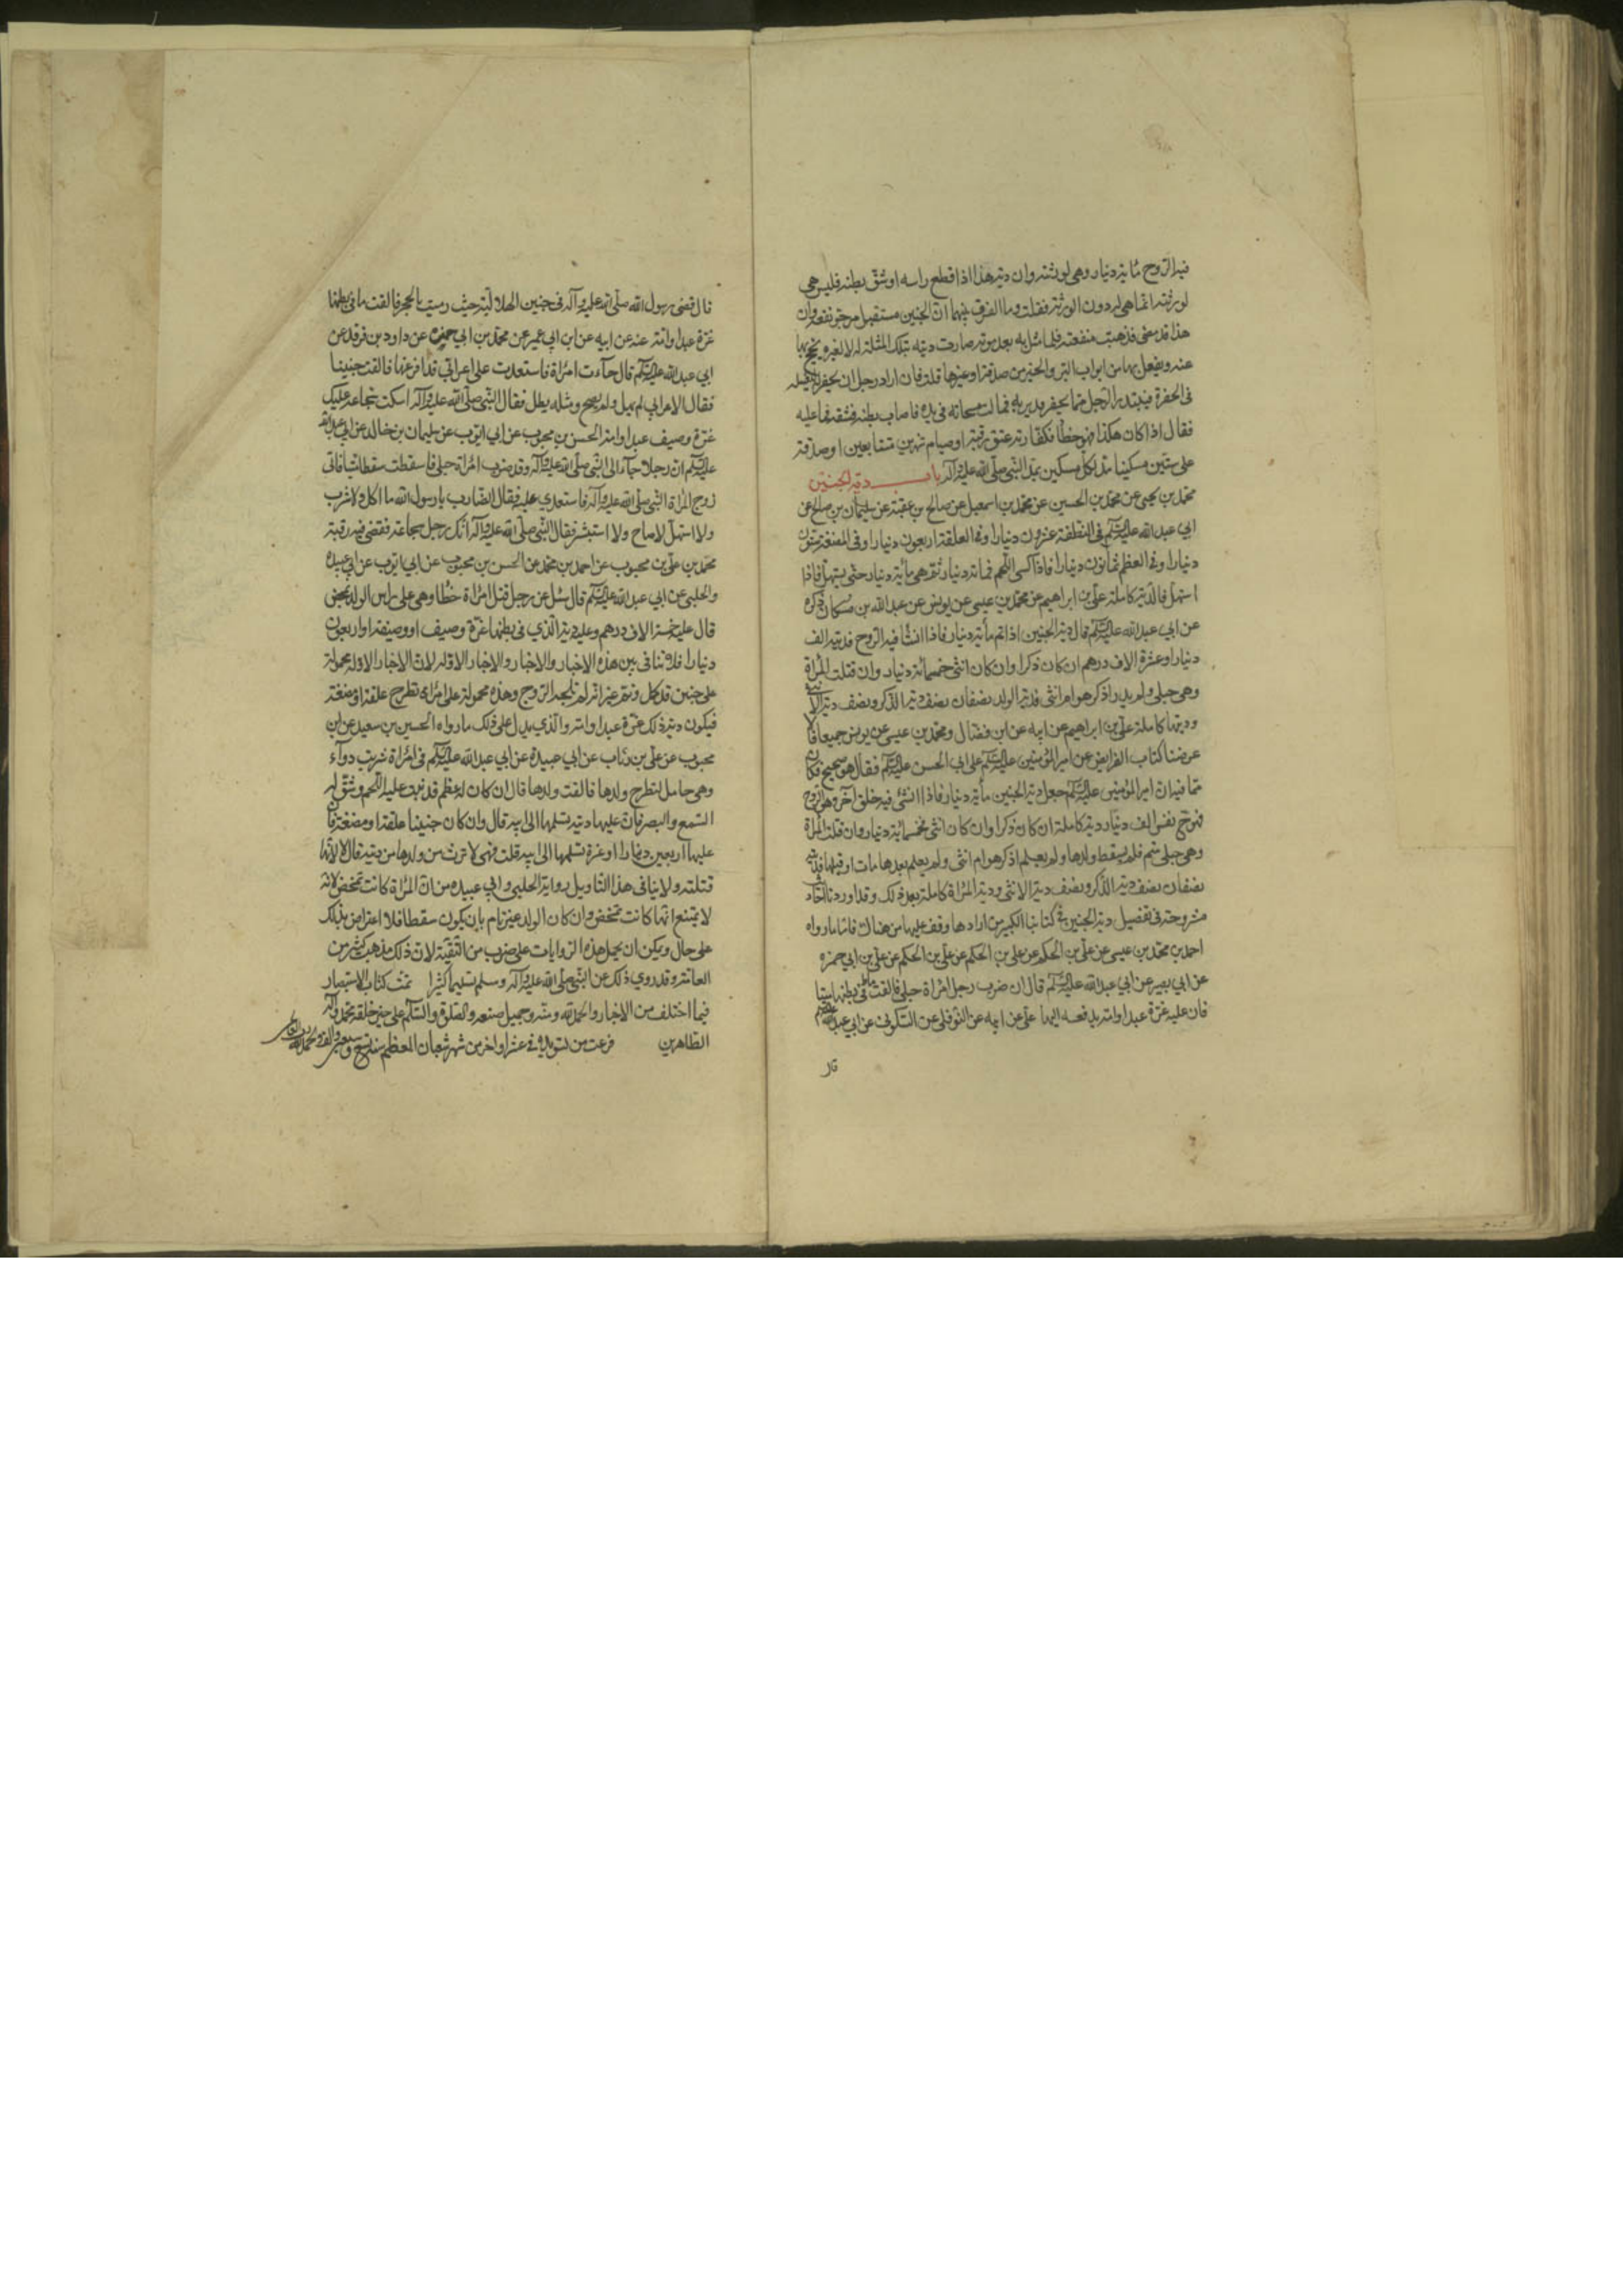 فيه الروح مائة دينار وهي لورثته وان دية هذا اذا قطع راسه او شق بطنه فليس هي
لورثته انما هي له دون الورثة فقلت وما الفرق بينهما ان الجنين مستقبل مرجو نفعه وان
هذا قد مضى فذهبت منفعته فلما مثل به بعد موته صارت ديته بتلك المثلة له لا لغيره يحج بها
عنه ويفعل بها من ابواب البر والخير من صدقة او غيرها قلت فان اراد رجل ان يحفر له ليغسله
في الحفرة فيدير الرجل مما يحفر بين يديه فمالت مسحاته في يده فاصاب بطنه فشقه فما عليه
فقال اذا كان هكذا فهو خطأ فكفارته عتق رقبة او صيام شهرين متتابعين او صدقة
على ستين مسكينا مد لكل مسكين بمد النبي صلى الله عليه وآله باب دية الجنين
محمد بن يحيى عن محمد بن الحسين عن محمد بن اسمعيل عن صالح بن عقبة عن سليمان بن صالح عن
ابي عبد الله عليه السلم في النطفة عشرون دينارا وفي العلقة اربعون دينارا وفي المضغة ستون
دينارا وفي العظم ثمانون دينارا فاذا كسى اللحم فمائة دينار ثم هي مائة دينار حتى يستهل فاذا
استهل فالدية كاملة علي بن ابراهيم عن محمد بن عيسى عن يونس عن عبد الله بن مسكان ذكره
عن ابي عبد الله عليه السلم قال دية الجنين اذا تم مأية دينار فاذا انشأ فيه الروح فديته الف
دينار او عشرة الاف درهم ان كان ذكرا وان كان انثى خمسمائة دينار وان قتلت المرأة
وهي حبلى ولم يدر اذكر هو ام انثى فدية الولد نصفان نصف دية الذكر ونصف دية الانثى
وديتها كاملة علي بن ابراهيم عن ابيه عن ابن فضال ومحمد بن عيسى عن يونس جميعا قالا
عرضنا كتاب الفرايض عن امير المؤمنين عليه السلم على ابي الحسن عليه السلم فقال هو صحيح فكان
مما فيه ان امير المؤمنين عليه السلم جعل دية الجنين مأية دينار فاذا انشئ فيه خلق آخر وهو الروح
فهو ح نفس الف دينار دية كاملة ان كان ذكرا وان كان انثى فخمسمائة دينار وان قتلت المرأة
وهي حبلى متم فلم يسقط ولدها ولم يعلم اذكر هو ام انثى ولم يعلم بعدها مات او قبلها فديته
نصفان نصف دية الذكر ونصف دية الانثى ودية المرأة كاملة بعد ذلك وقد اوردنا الاخبار
مشروحة في تفصيل دية الجنين في كتابنا الكبير من ارادها وقف عليها من هناك فاما ما رواه
احمد بن محمد بن عيسى عن علي بن الحكم عن علي بن الحكم عن علي بن الحكم عن علي بن ابي حمزه
عن ابي بصير عن ابي عبد الله عليه السلم قال ان ضرب رجل امرأة حبلى فالقت ما في بطنها ميتا
فان عليه غرة عبد او امة يدفعه اليها علي عن ابيه عن النوفلي عن السكوني عن ابي عبد الله عليه السلم
قال
قال قضى رسول الله صلى الله عليه وآله في جنين الهلالية حيث رميت بالحجر فالقت ما في بطنها
غرة عبد او امة عنه عن ابيه عن ابن ابي عمير عن محمد بن ابي حمزه عن داود بن فرقد عن
ابي عبد الله عليه السلم قال جاءت امرأة فاستعدت على اعرابي قد افزعها فالقت جنينا
فقال الاعرابي لم يهل ولم يصح ومثله يطل فقال النبي صلى الله عليه وآله اسكت سجاعة عليك
غرة وصيف عبد او امة الحسن بن محبوب عن ابي ايوب عن سليمان بن خالد عن ابي عبد الله
عليه السلم ان رجلا جاء الى النبي صلى الله عليه وآله وقد ضرب امرأة حبلى فاسقطت سقطا ميتا فاتى
زوج المرأة النبي صلى الله عليه وآله فاستعدي عليه فقال الضارب يا رسول الله ما اكل ولا شرب
ولا استهل لا صاح ولا استبشر فقال النبي صلى الله عليه وآله انك رجل سجاعة فقضى فيه رقبة
محمد بن علي بن محبوب عن احمد بن محمد عن الحسن بن محبوب عن ابي ايوب عن ابي عبيده
والحلبي عن ابي عبد الله عليه السلم قال سئل عن رجل قتل امرأة خطأ وهي على راس الولد تمخض
قال عليه خمسة الاف درهم وعليه دية الذي في بطنها غرة وصيف او وصيفة او اربعون
دينارا فلا تنافى بين هذه الاخبار والاخبار الاولة لان الاخبار الاولة محمولة
على جنين قد كمل وتم غير انه لم تلجه الروح وهذه محمولة على امرأة تطرح علقة او مضغة
فيكون دية ذلك غرة عبد او امة والذي يدل على ذلك ما رواه الحسين بن سعيد عن ابن
محبوب عن علي بن رئاب عن ابي عبيدة عن ابي عبد الله عليه السلم في امرأة شربت دواء
وهي حامل لتطرح ولدها فالقت ولدها قال ان كان له عظم قد نبت عليه اللحم وشق له
السمع والبصر فان عليها دية تسلمها الى ابيه قال وان كان جنينا علقة او مضغة فان
عليها اربعين دينارا او غرة تسلمها الى ابيه قلت فهي لا ترث من ولدها من ديته قال لا لانها
قتلته ولا ينافي هذا التاويل رواية الحلبي وابي عبيده من ان المرأة كانت تمخض لانه
لا يمتنع انها كانت تمخض وان كان الولد غير تام بان يكون سقطا فلا اعتراض بذلك
على حال ويمكن ان يحمل هذه الروايات على ضرب من التقية لان ذلك مذهب كثير من
العامة وقد روي ذلك عن النبي صلى الله عليه وآله وسلم تسليما كثيرا تمت كتاب الاستبصار
فيما اختلف من الاخبار والحمد لله وجميل صنعه والصلوة والسلم على خير خلقه محمد وآله
الطاهرين فرغت من تسويده في عشر اواخر من شهر شعبان المعظم سنة